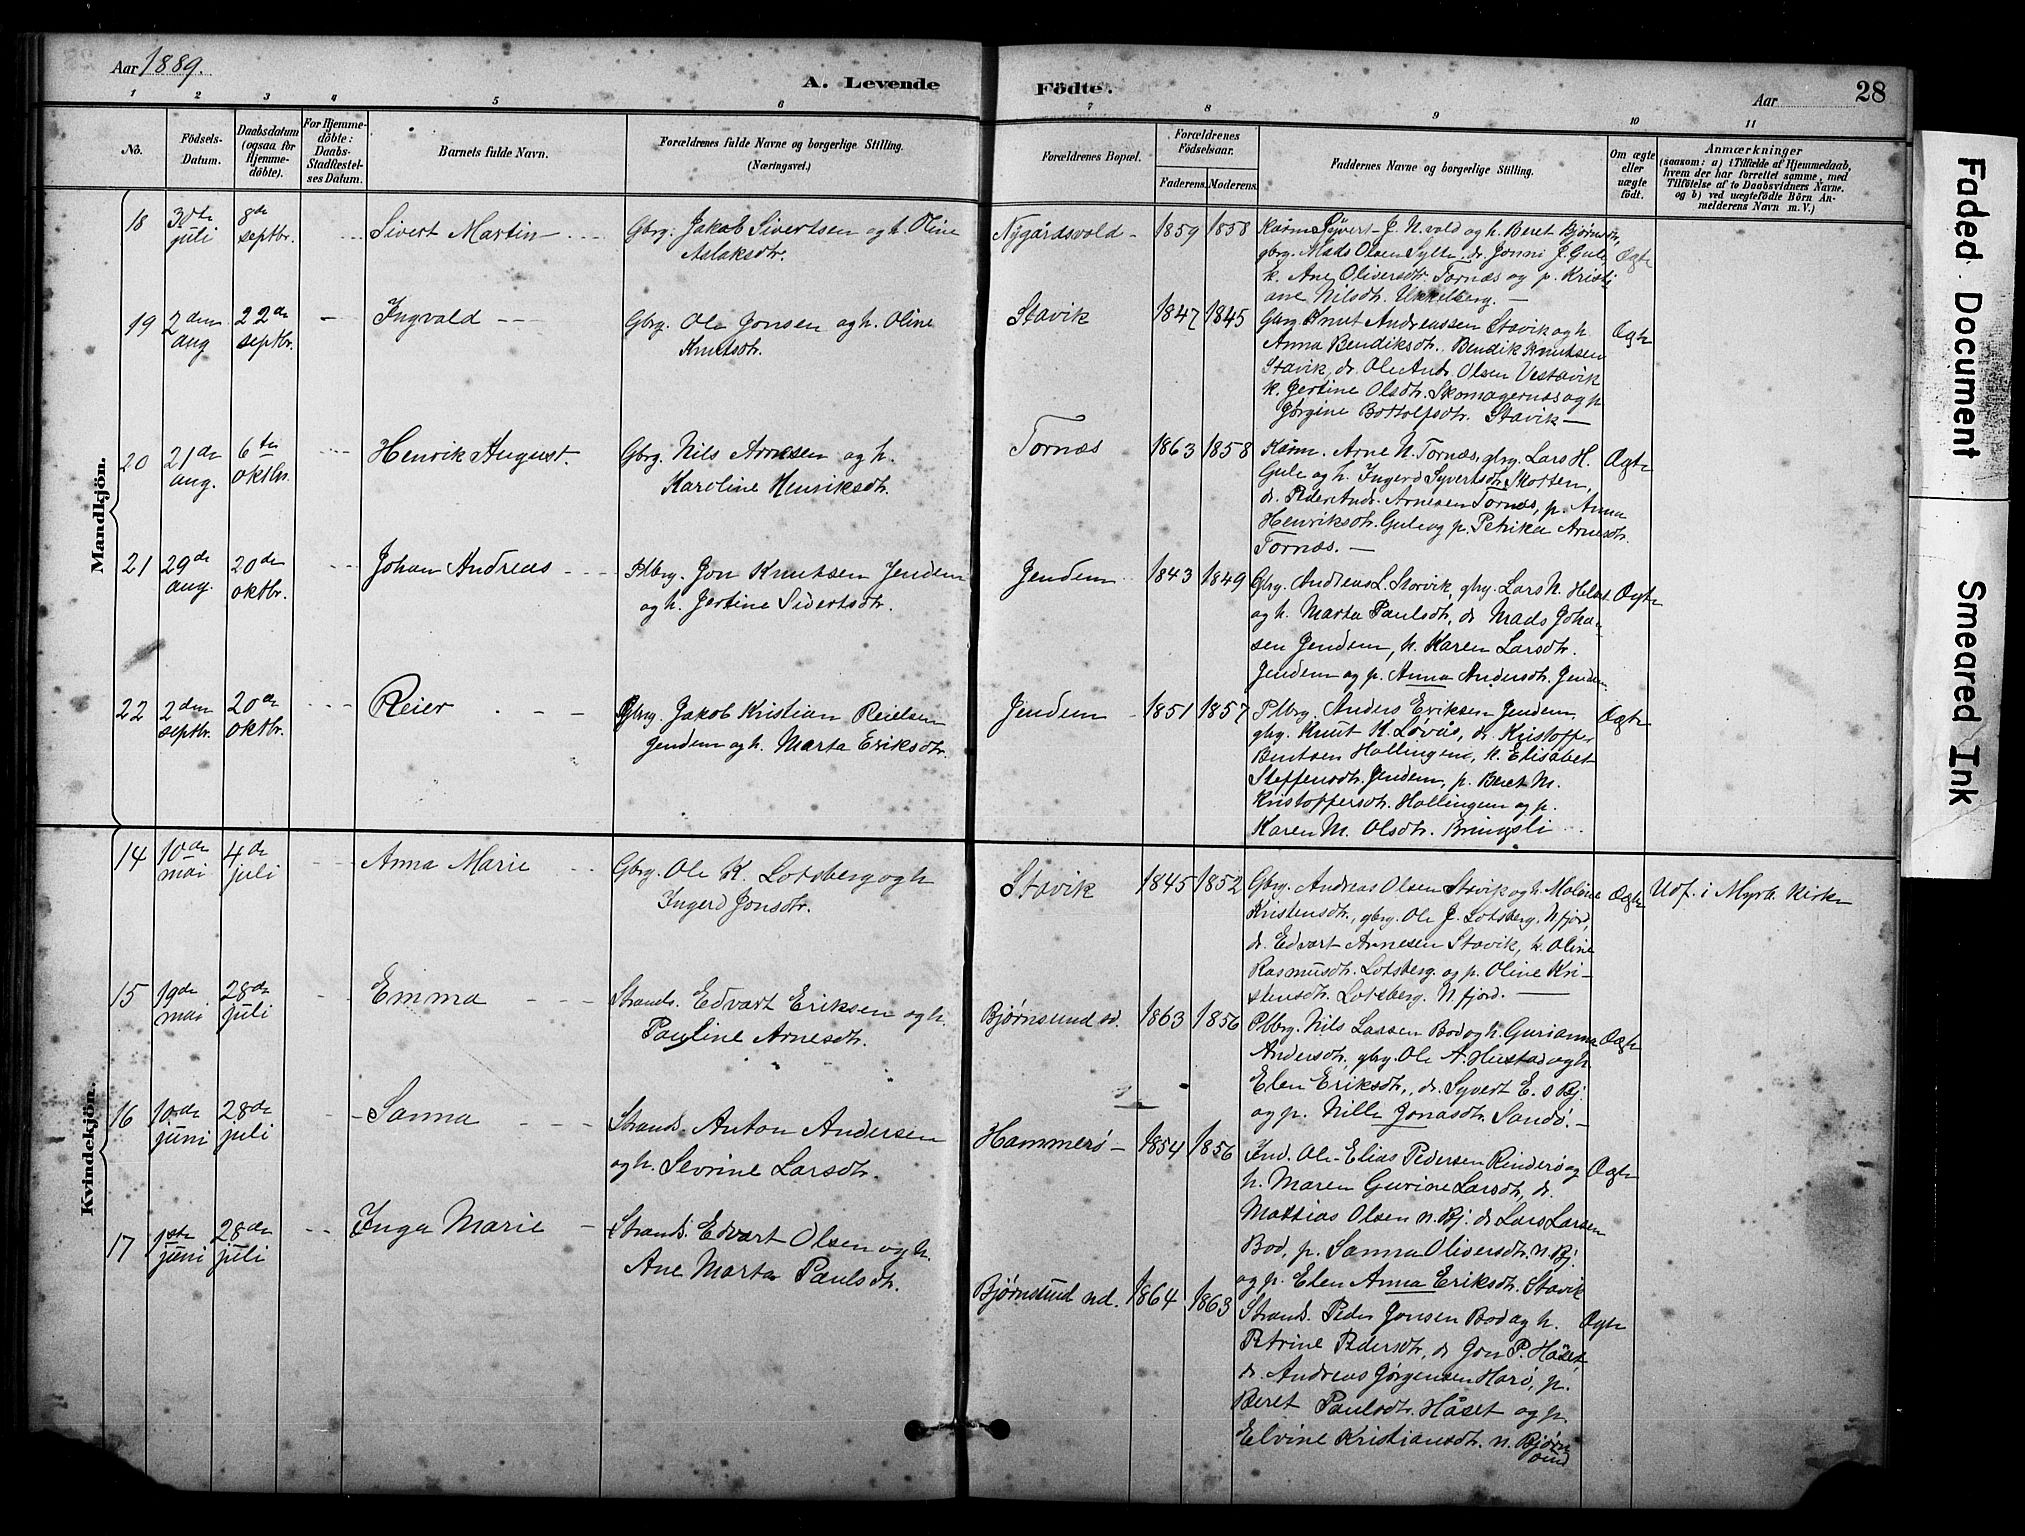 Aar 1889.
A. Levende Födte.
Aar 28
1 2 3 4 5 6 7 8 9 10 11
No.
Födsels-Datum.
Daabsdatum (ogsaa for Hjemmedöbte).
For Hjemmedöbte: Daabs-Stadfæstelses Datum.
Barnets fulde Navn.
Forældrenes fulde Navne og borgerlige Stilling. (Næringsvei).
Forældrenes Bopæl.
Forældrenes Födselsaar.
Faderens. Moderens.
Faddernes Navne og borgerlige Stilling.
Om ægte eller uægte födt.
Anmærkninger
(saasom: a) i Tilfælde af Hjemmedaab, hvem der har forrettet samme, med Tilföielse af to Daabsvidners Navne. og b) ved uægtefödte Börn Anmelderens Navn m. V.)
Mandkjön.
18 30te juli 8de septbr. Sivert Martin Gbrg. Jakob Sivertsen og h. Oline
Aslaksdtr.
Nygårdsvold 1859 1858 Kårm. Syvert J. N.vold og h. Beret Bjørnsdtr,
gbrg. Mads Olsen Sylte, dr. Jonni J. Gule, Ægte
k. Ane Oliversdtr. Tornæs og p. Kristi
ane Nilsdtr. Ukkelberg. —
19 2den aug 22de septbr. Ingvald Gbrg. Ole Jonsen og h. Oline
Knutsdtr.
Stavik 1847 1845 Gbrg. Knut Andreassen Stavik og h.
Anna Bendiksdtr. Bendik Knutsen Ægte
Stavik, dr. Ole Andr. Olsen Vestavik
k. Jertine Olsdtr. Skomagernæs og p
Jørgine Bottolfsdtr. Stavik —
20 21de aug. 6te oktbr. Henrik August. Gbrg. Nils Arnesen og h.
Karoline Henriksdtr.
Tornæs 1863 1858 Kårm. Arne N. Tornæs, gbrg. Lars H. Ægte
Gule og h. Ingerd Syvertsdtr. Morten,
dr. Peder Andr. Arnesen Tornæs, p. Anna
Henriksdtr. Gule og p. Petrika Arnesdtr.
Tornæs. —
21 29de aug. 20de oktbr. Johan Andreas Plbrg. Jon Knutsen Jendem
og h. Jertine Sivertsdtr.
Jendem 1843 1849 Gbrg. Andreas L. Stavik, gbrg. Lars N. Ægte
og h. Marta Paulsdtr, dr. Mads Joha-
sen Jendem, k. Karen Larsdtr.
Jendem og p. Anna Andersdtr. Jendem
22 2den septbr. 20de oktbr. Reier Gbrg. Jakob Kristian Reielsen
Jendem og h. Marta Eriksdtr.
Jendem 1851 1857 Plbrg. Anders Eriksen Jendem, Ægte
gbrg. Knut K. Løvås, dr. Kristoffer
Bentsen Hollingem, k. Elisabet
Steffensdtr. Jendem, p. Beret M.
Kristoffersdtr. Hollingem og p.
Karen M. Olsdtr. Bringsli
Kvindekjön.
14 10de mai 4de juli Anna Marie Gbrg. Ole K. Lotsberg og h
Ingerd Jonsdtr.
Stavik 1845 1852 Gbrg. Andreas Olsen Stavik og h. Malene Ægte Udf. i Myrb. Kirke
Kristensdtr., gbrg. Ole J. Lotsberg. N fjord,
dr. Edvart Arnesen Stavik, k. Oline
Rasmusdtr. Lotsberg og p. Oline Kri-
stensdtr. Lotsberg. N fjord. —
15 19de mai 28de juli Emma Strands. Edvart Eriksen og h.
Pauline Arnesdtr.
Bjørnsund sd. 1863 1856 Plbrg. Nils Lassen Bod og h. Gurianna Ægte
Andersdtr, gbrg. Ole A. Hustad og h.
Elen Eriksdtr., dr. Syvert E. s Bj.
og p. Nille Jonasdtr. Sandø. —
16 10de juni 28de juli Sanna Strands. Anton Andersen
og h. Sevrine Larsdtr.
Hammerø 1854 1856 Ind. Ole Elias Pedersen Rinderø og Ægte
h. Maren Gurine Larsdtr, dr.
Mattias Olsen n. Bj. dr Lars Larsen
Bod, p. Sanna Oliversdtr. n. Bj.
og p. Elen Anna Eriksdtr. Stavik
17 1ste juni 28de juli Inga Marie Strands. Edvart Olsen og h.
Ane Marta Paulsdtr.
Bjørnsund nd. 1864 1863 Strands. Peder Jonsen Bod og h. Ægte
Petrine Pedersdtr, dr Jon P. Håset,
dr. Andreas Jørgensen Harø, p.
Beret Paulsdtr. Håset og p.
Elvine Kristiansdtr. n. Bjørn
sund
Faded Document
Smeared Ink